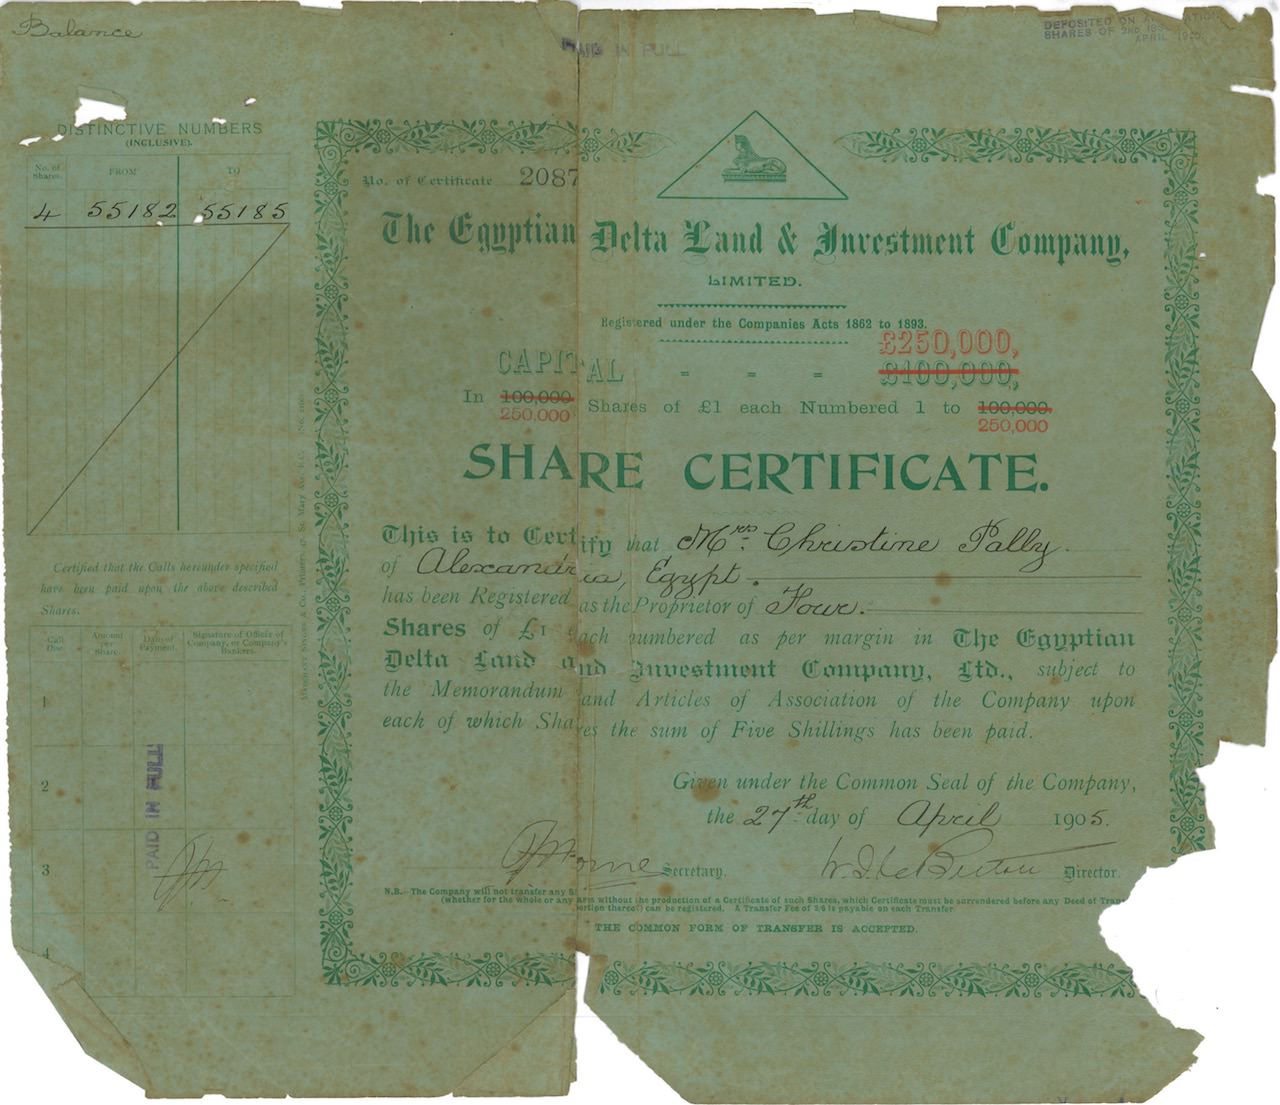 Balance
PAID IN FULL
DEPOSITED ON
SHARES OF 2ND
APRIL
DISTINCTIVE NUMBERS
(INCLUSIVE).
No. of Shares. FROM TO
4 55182 55185
No. of Certificate 2087
The Egyptian Delta Land & Investment Company,
LIMITED.
Registered under the Companies Acts 1862 to 1893.
£250,000,
CAPITAL = = = £100,000,
In 100,000 Shares of £1 each Numbered 1 to 100,000.
250,000 250,000
SHARE CERTIFICATE.
This is to Certify that Mrs. Christine Pally.
of Alexandria, Egypt.
has been Registered as the Proprietor of Four.
Shares of £1 each numbered as per margin in The Egyptian
Delta Land and Investment Company, Ltd., subject to
the Memorandum and Articles of Association of the Company upon
each of which Shares the sum of Five Shillings has been paid.
Given under the Common Seal of the Company,
the 27th day of April 1905.
Secretary. Director.
N.B.—The Company will not transfer any
(whether for the whole or any without the production of a Certificate of such Shares, which Certificate must be surrendered before any Deed of
portion thereof) can be registered. A Transfer Fee of 2/6 is payable on each Transfer.
THE COMMON FORM OF TRANSFER IS ACCEPTED.
Certified that the Calls hereunder specified
have been paid upon the above described
Shares.
Call Due. Amount per Share. Date of Payment. Signature of Officer of Company, or Company's Bankers.
1
2
3
4
PAID IN FULL